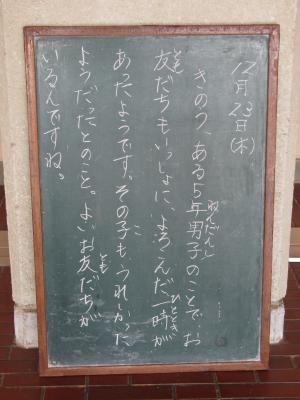 12月23日(木)
きのう、ある5年男子のことで、お
友だちもいっしょに、よろこんだ一時が
あったようです。その子も、うれしかった
ようだったとのこと。よいお友だちが
いるんですね。